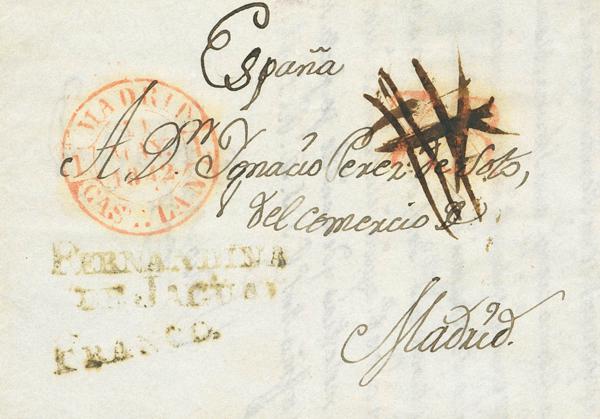 España
MADRID
CAS. LA N.
A D.n Ygnacio Perez de Soto,
del comercio
FERNANDINA
DE JAGUA
FRANCO.
Madrid.